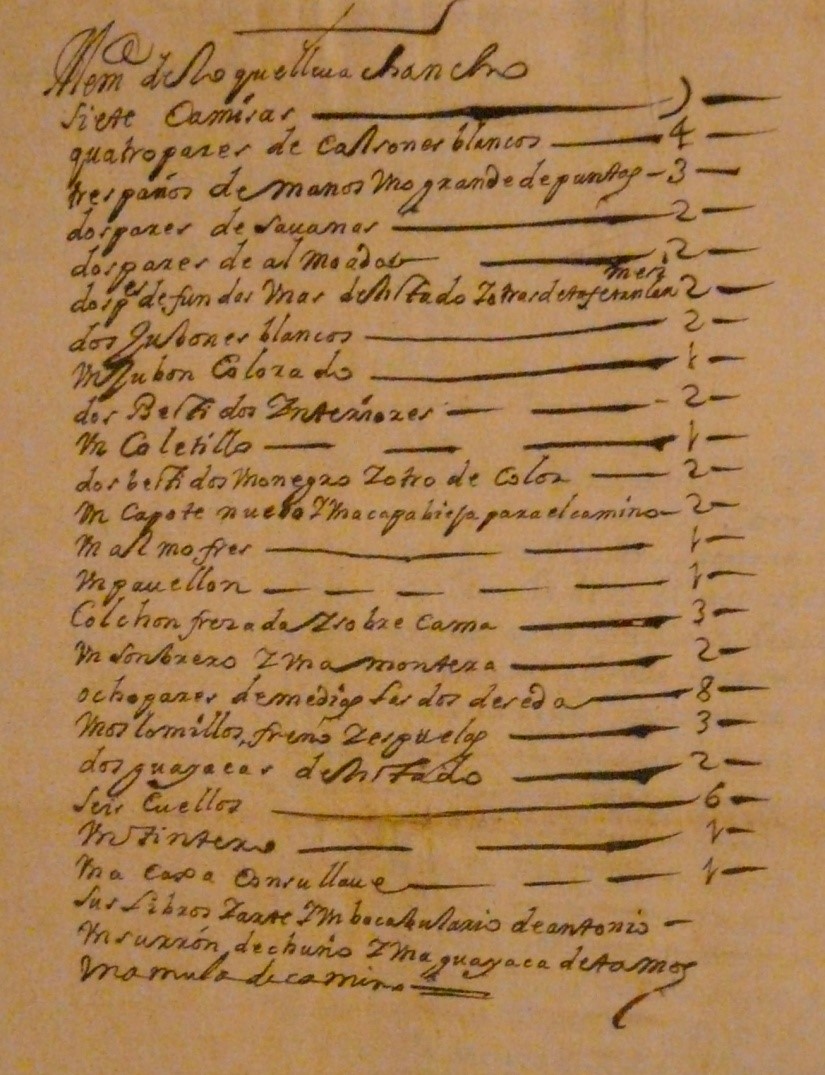 Mem^a de lo que lleua chancho
siete Camisas 7
quatro pares de Calsones blancos 4
tres paños de manos Vno grande de puntas 3
dos pares de sauanas 2
dos pares de almoadas 2
dos p^es de fundas Vnas de listado Z otras de tafetan 2
dos Jubones blancos 2
Vn Jubon Colorado 1
dos Bestidos Ynteriores 2
Vn Coletillo 1
dos bestidos Vno negro Z otro de Color 2
Vn Capote nuebo Z Vna capa bieja para el camino 2
Vn almofres 1
Vn pauellon 1
Colchon frezada Z sobre Cama 3
Vn sonbrero Z Vna montera 2
ocho pares de medias las dos de seda 8
Vnos lomillos, freno Z espuelas 3
dos guayacas de listado 2
seis Cuellos 6
Vn tintero 1
Vna Caxa Con su llaue 1
sus libros Z arte Z Vn bocabulario de antonio
Vn surrón de chuño Z Vna guayaca de tamos
Vna mula de camino